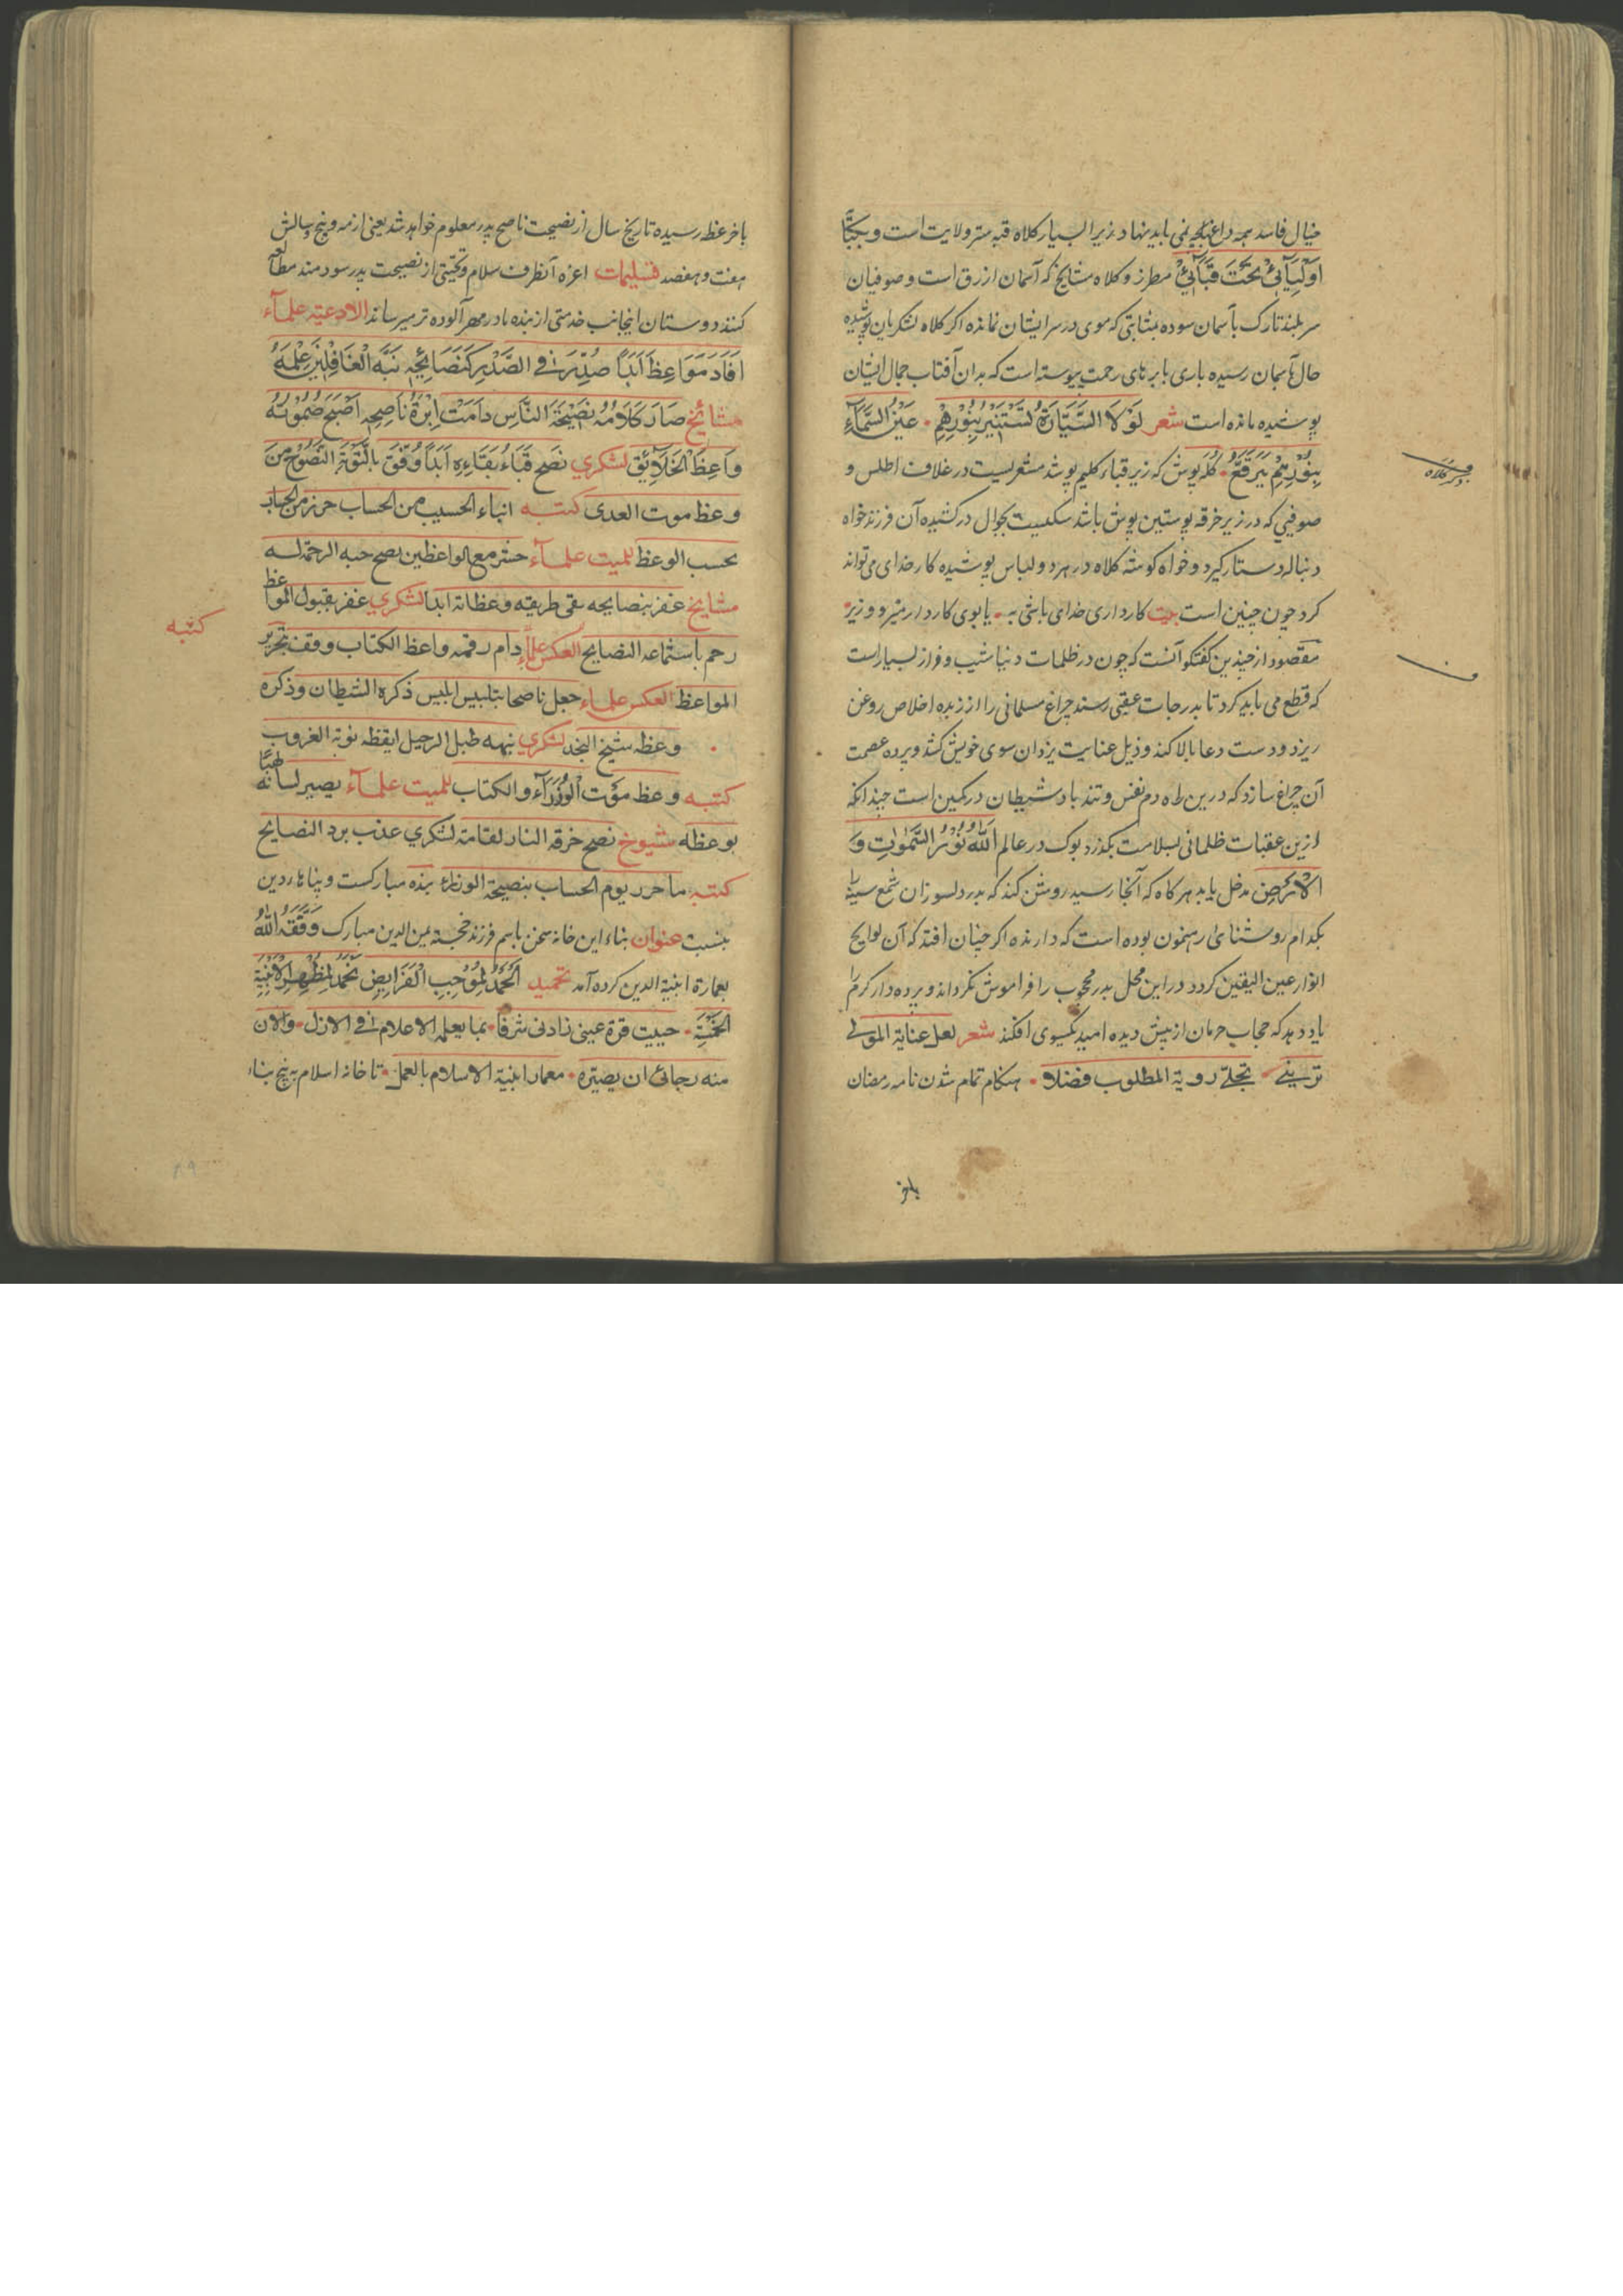 خیال فاسد همه دماغها نمی باید نهاد زیرا بسیار کلاه قبه ستر ولایت است و
اَوْلِیَآئِیْ تَحْتَ قَبَآئِیْ مطرز و کلاه مشایخ که آسمان ازرق است و صوفیان
سر بلند تارک بآسمان سوده بمثابتی که موی در سر ایشان نمانده اکر کلاه لشکریان پوشیده
حال بآسمان رسیده باری بابرهای رحمت پیوسته است که بدان آفتاب جمال ایشان
پوشیده مانده است شعر لَوْلَا السَّیَّارَةُ تَسْتَنِیْرُ بِنُوْرِهِمْ • عَیْنُ السَّمَآءِ
بِنُوْرِهِمْ • کله پوش که زیر قباء کلیم پوشد مشعریست در غلاف اطلس و
صوفیی که در زیر خرقه پوستین پوش باشد بجوال درکشیده آن فرزند خواه
دنباله دستار کیرد و خواه کوشه کلاه در هر دو لباس پوشیده کار خدای می تواند
کرد چون چنین است بیت کارداری خدای باشی به • یا بوی کاردار میر و وزیر •
مقصود از چندین کفتکو آنست که چون در ظلمات دنیا شیب و فراز بسیار است
که قطع می باید کرد تا بدرجات عقبی رسند چراغ مسلمانی را از زبده اخلاص روغن
ریزد و دست دعا بالا کند و ذیل عنایت یزدان سوی خویش کشد و پرده عصمت
آن چراغ سازد که درین راه دم نفس و تند باد شیطان در کمین است چندانکه
ازین عقبات ظلمانی بسلامت بکذرد بوک در عالم اَللّٰهُ نُوْرُ السَّمٰوٰتِ وَ
الْاَرْضِ مدخل یابد هرکاه که آنجا رسید روشن کند که پدر دلسوز آن شمع سینه را
بکدام روشنای رهنمون بوده است که دارنده اکر چنان افتد که آن لوایح
انوار عین الیقین کردد در این محل پدر محجوب را فراموش نکرداند و پرده دار کرم را
یاد دهد که حجاب حرمان از پیش دیده امید یکسوی افکند شعر لعل عنایة المولی
ترینی • تجلی رویة المطلوب فضلا • هنکام تمام شدن نامه رمضان
کلاه
باخر
باخر عظ رسیده تاریخ سال از نصیحت ناصح پدر معلوم خواهد شد یعنی از مه و پنج و سالش
هفت و هفصد تسلیمات اعزه آنطرف سلام و تحیتی از نصیحت پدر سودمند مطالعه
کنند دوستان اینجانب خدمتی از بنده باد رمهر آلوده تر میرساند الادعیة علمآء
اَفَادَ مَوَاعِظَ اَبَدًا صُدِّرَ فِی الصَّدْرِ کَنَصَائِحِهِ نَبَّهَ الْغَافِلِیْنَ عِلْمُهُ
مشائخ صَارَ کَلَامُهُ نَصِیْحَةَ النَّاسِ دَامَتْ اِبْرَةُ نَاصِحِهِ اَصْبَحَ صُمُوْتُهُ
وَاعِظَ الْخَلَائِقِ لشکری نَصَحَ قَبَاءُ بَقَاءِهِ اَبَدًا وُفِّقَ بِالتَّوْبَةِ النَّصُوْحِ مِنَ
وعظ موت العدی کتبه انباء الحسیب من الحساب حرز من الجهاد
بحسب الوعظ للمیت علمآء حشر مع الواعظین یصح حبه الرحمة له
مشایخ غفر بنصایحه بقی طریقه وعظاته ابدا لشکری غفر بقبول المواعظ
کتبه
رحم باستماعه النصایح العکس علمآء دام رقمه واعظ الکتاب وقف بتحریر
المواعظ العکس علماء جعل ناصحا بتلبیس ابلیس ذکره الشیطان وذکره
• وعظه شیخ النجد لشکری نبهه طبل الرحیل ایقظه نوبة الغروب
کتبه وعظ موت الوُزَرَآء والکتاب للمیت علمآء یصیر لسانه لهبًا
بوعظه شیوخ نصح خرقه النار لقامته لشکری عذب برد النصایح
کتبه ما حرر یوم الحساب بنصیحة الوزراء بنده مبارکست و پناها ردین
بنسبت عنوان بناء این خانه سخن باسم فرزند خجسته یمن الدین مبارک وَفَّقَهُ اللّٰهُ
بعمارة ابنیة الدین کرده آمد تحمید اَلْحَمْدُ لِمُوْجِبِ الْفَرَایِضِ نَحْمَدُ لِمُظْهِرِ الْاَبْنِیَةِ
الخَمْسَةِ • حییت قرة عینی زادنی شرفا • بما یعلمه الاعلام فی الازل • والان
منه رجائی ان یصیره • معمار ابنیة الاسلام بالعمل • تا خانه اسلام به پنج بناء
۲۹